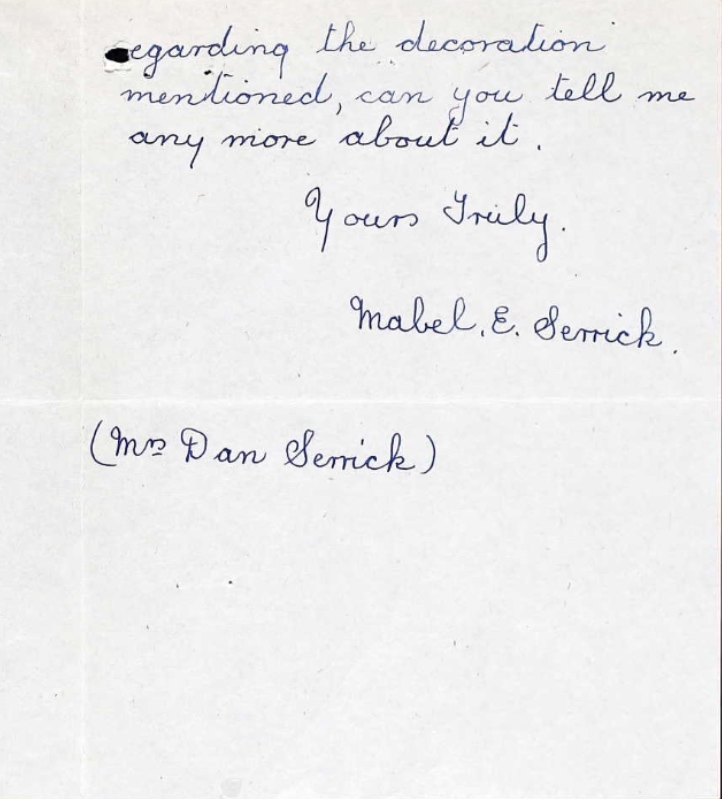 egarding the decoration
mentioned, can you tell me
any more about it.
Yours Truly.
Mabel. E. Serrick.
(Mrs Dan Serrick)